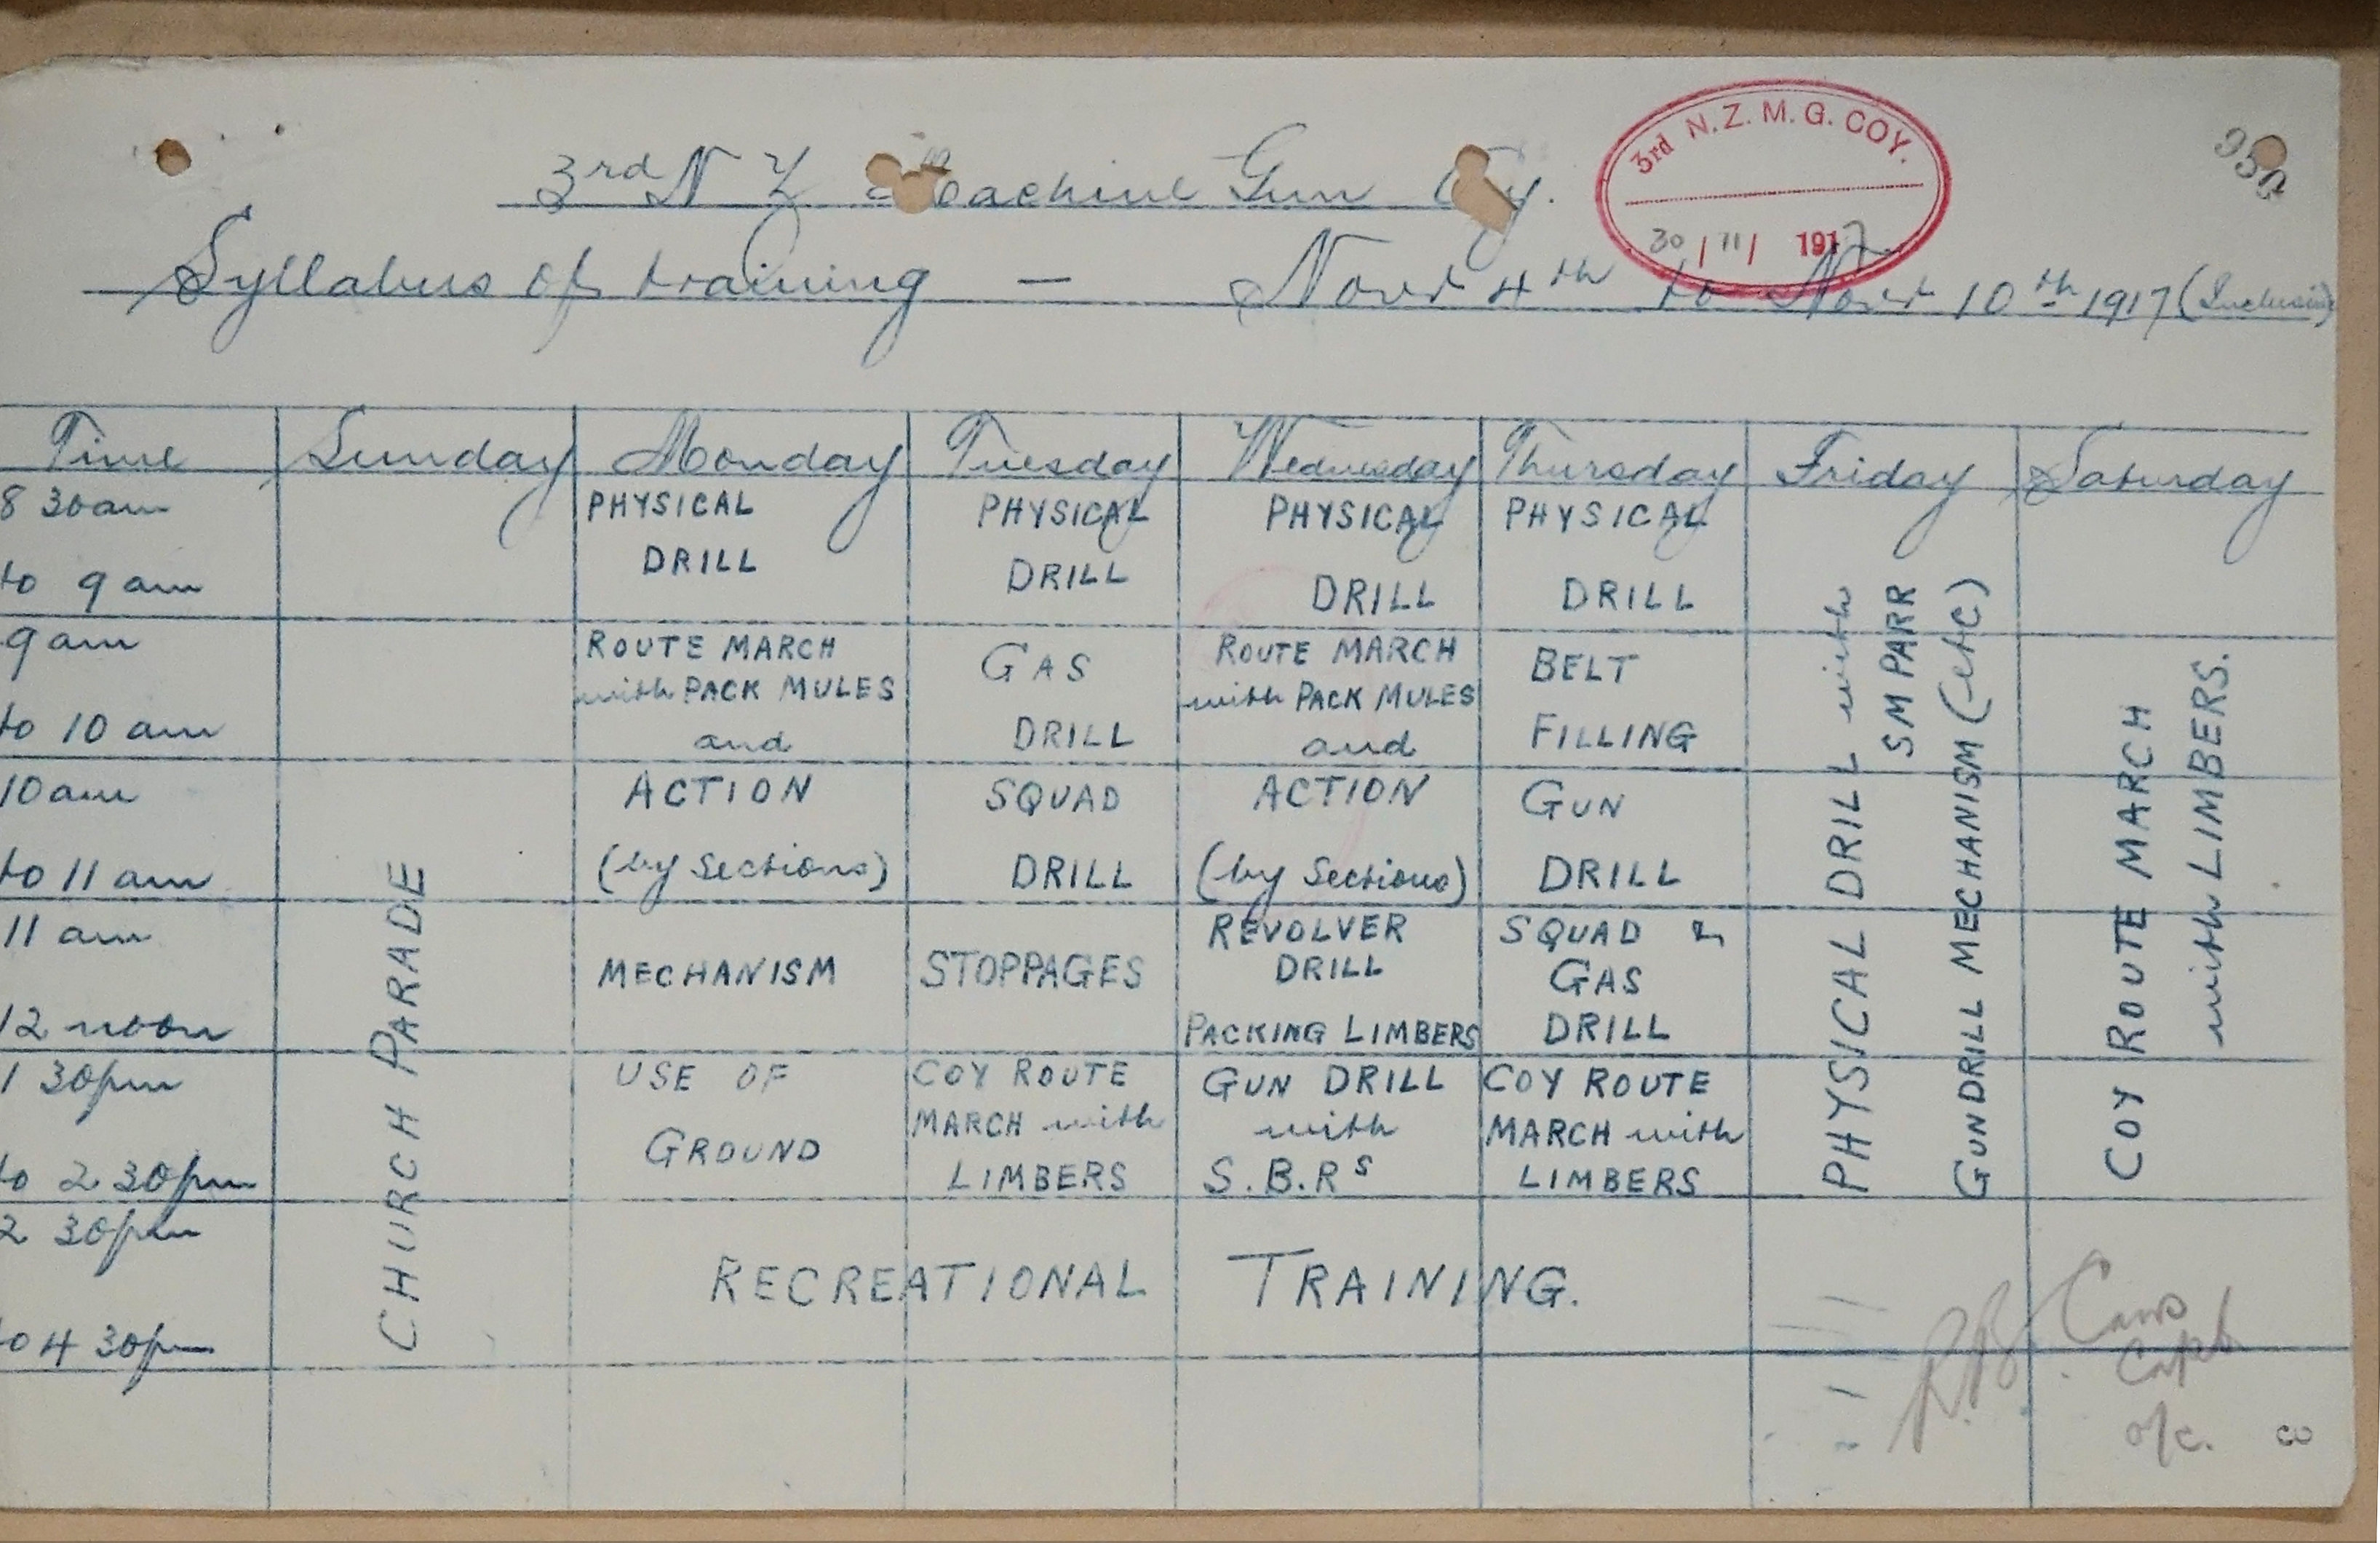 3rd N.Z. M.G. COY.
30 / 11 / 1917
950
3rd N Z Machine Gun Coy.
Syllabus of training — Novr 4th to Novr 10th 1917 (Inclusive)
Time Sunday Monday Tuesday Wednesday Thursday Friday Saturday
8 30am PHYSICAL PHYSICAL PHYSICAL PHYSICAL
to 9 am DRILL DRILL DRILL DRILL
9 am ROUTE MARCH GAS ROUTE MARCH BELT
with PACK MULES with PACK MULES
to 10 am and DRILL and FILLING
10am ACTION SQUAD ACTION GUN
to 11 am (by Sections) DRILL (by Sections) DRILL
11 am REVOLVER SQUAD &
MECHANISM STOPPAGES DRILL GAS
12 noon PACKING LIMBERS DRILL
1 30pm USE OF COY ROUTE GUN DRILL COY ROUTE
MARCH with with MARCH with
to 2 30pm GROUND LIMBERS S.B.Rs LIMBERS
2 30pm
RECREATIONAL TRAINING.
to 4 30pm
CHURCH PARADE
PHYSICAL DRILL with
SM PARR
GUNDRILL MECHANISM (etc)
COY ROUTE MARCH
with LIMBERS.
Capt
o/c.
8